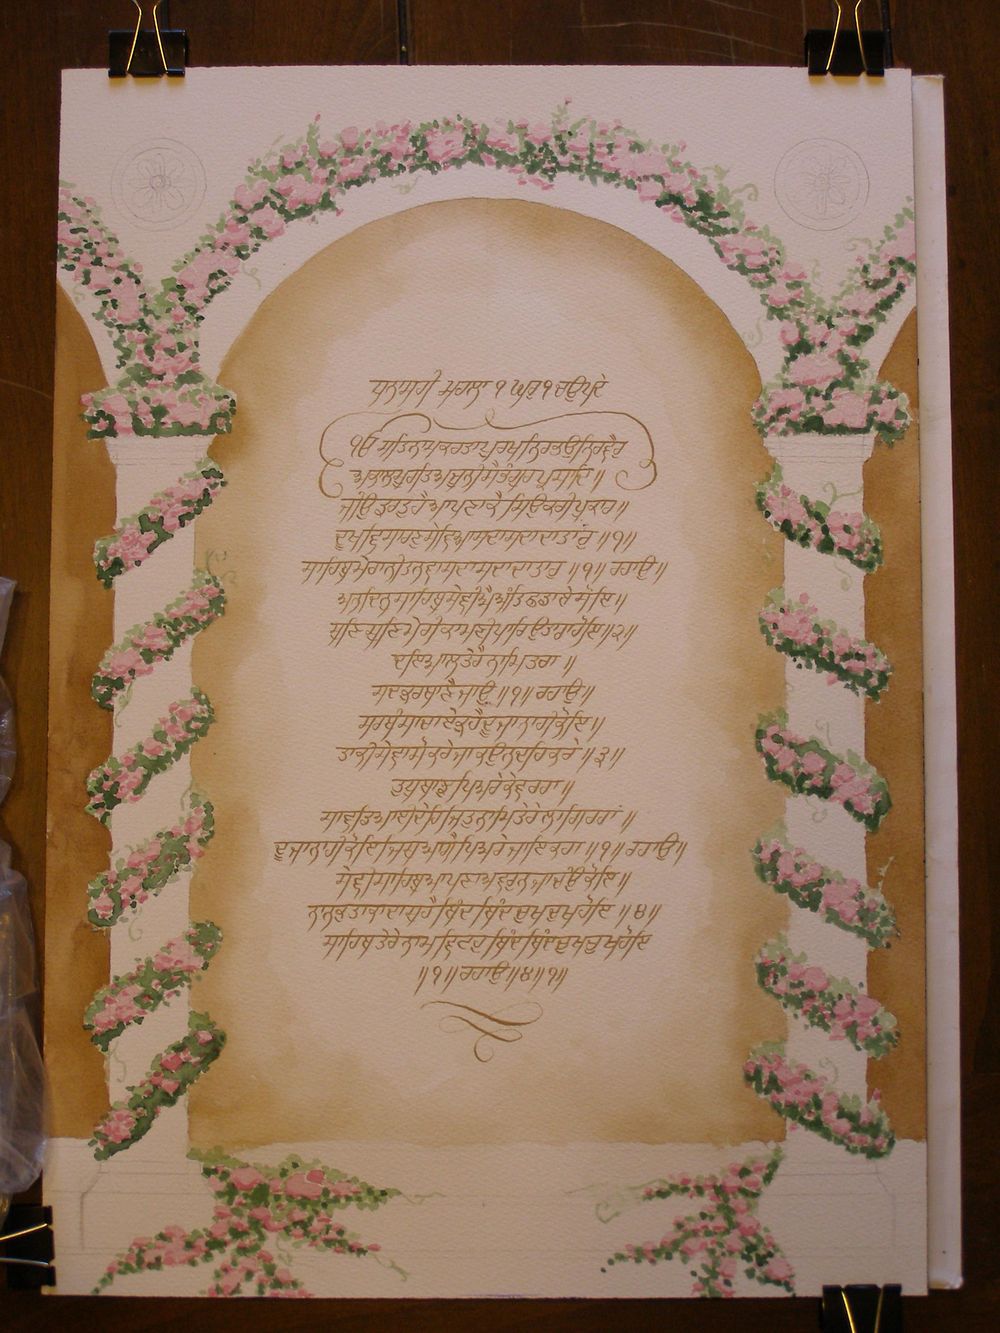 ਧਨਾਸਰੀ ਮਹਲਾ ੧ ਘਰੁ ੧ ਚਉਪਦੇ
ੴ ਸਤਿਨਾਮੁ ਕਰਤਾ ਪੁਰਖੁ ਨਿਰਭਉ ਨਿਰਵੈਰੁ
ਅਕਾਲ ਮੂਰਤਿ ਅਜੂਨੀ ਸੈਭੰ ਗੁਰ ਪ੍ਰਸਾਦਿ ॥
ਜੀਉ ਡਰਤੁ ਹੈ ਆਪਣਾ ਕੈ ਸਿਉ ਕਰੀ ਪੁਕਾਰ ॥
ਦੂਖ ਵਿਸਾਰਣੁ ਸੇਵਿਆ ਸਦਾ ਸਦਾ ਦਾਤਾਰੁ ॥੧॥
ਸਾਹਿਬੁ ਮੇਰਾ ਨੀਤ ਨਵਾ ਸਦਾ ਸਦਾ ਦਾਤਾਰੁ ॥੧॥ ਰਹਾਉ ॥
ਅਨਦਿਨੁ ਸਾਹਿਬੁ ਸੇਵੀਐ ਅੰਤਿ ਛਡਾਏ ਸੋਇ ॥
ਸੁਣਿ ਸੁਣਿ ਮੇਰੀ ਕਾਮਣੀ ਪਾਰਿ ਉਤਾਰਾ ਹੋਇ ॥੨॥
ਦਇਆਲ ਤੇਰੈ ਨਾਮਿ ਤਰਾ ॥
ਸਦ ਕੁਰਬਾਣੈ ਜਾਉ ॥੧॥ ਰਹਾਉ ॥
ਸਰਬੰ ਸਾਚਾ ਏਕੁ ਹੈ ਦੂਜਾ ਨਾਹੀ ਕੋਇ ॥
ਤਾ ਕੀ ਸੇਵਾ ਸੋ ਕਰੇ ਜਾ ਕਉ ਨਦਰਿ ਕਰੇ ॥੩॥
ਤੁਧੁ ਬਾਝੁ ਪਿਆਰੇ ਕੇਵ ਰਹਾ ॥
ਸਾ ਵਡਿਆਈ ਦੇਹਿ ਜਿਤੁ ਨਾਮਿ ਤੇਰੇ ਲਾਗਿ ਰਹਾਂ ॥
ਦੂਜਾ ਨਾਹੀ ਕੋਇ ਜਿਸੁ ਆਗੈ ਪਿਆਰੇ ਜਾਇ ਕਹਾ ॥੧॥ ਰਹਾਉ ॥
ਸੇਵੀ ਸਾਹਿਬੁ ਆਪਣਾ ਅਵਰੁ ਨ ਜਾਚੰਉ ਕੋਇ ॥
ਨਾਨਕੁ ਤਾ ਕਾ ਦਾਸੁ ਹੈ ਬਿੰਦ ਬਿੰਦ ਚੁਖ ਚੁਖ ਹੋਇ ॥੪॥
ਸਾਹਿਬ ਤੇਰੇ ਨਾਮ ਵਿਟਹੁ ਬਿੰਦ ਬਿੰਦ ਚੁਖ ਚੁਖ ਹੋਇ
॥੧॥ ਰਹਾਉ ॥੪॥੧॥